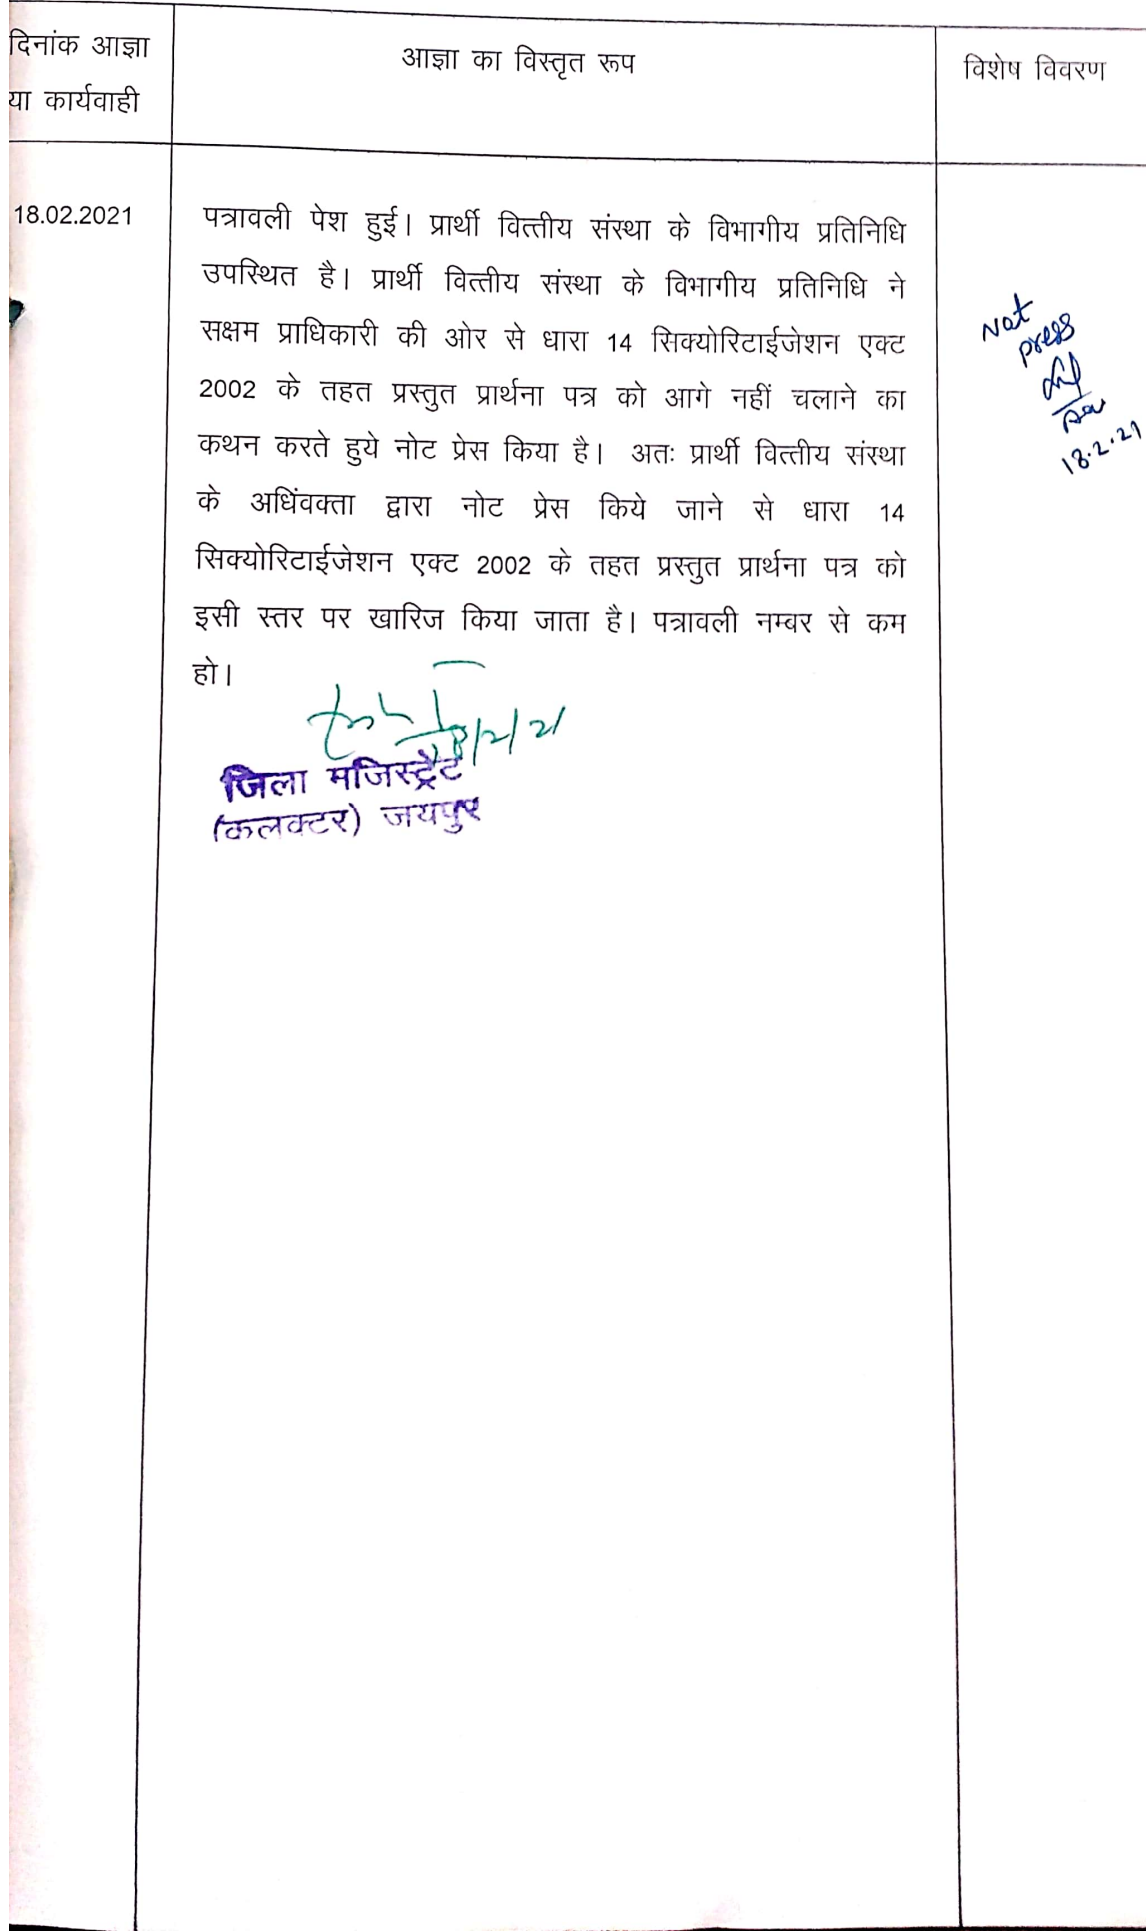 दिनांक आज्ञा
या कार्यवाही
आज्ञा का विस्तृत रूप
विशेष विवरण
18.02.2021
पत्रावली पेश हुई। प्रार्थी वित्तीय संस्था के विभागीय प्रतिनिधि
उपस्थित है। प्रार्थी वित्तीय संस्था के विभागीय प्रतिनिधि ने
सक्षम प्राधिकारी की ओर से धारा 14 सिक्योरिटाईजेशन एक्ट
2002 के तहत प्रस्तुत प्रार्थना पत्र को आगे नहीं चलाने का
कथन करते हुये नोट प्रेस किया है। अतः प्रार्थी वित्तीय संस्था
के अधिंवक्ता द्वारा नोट प्रेस किये जाने से धारा 14
सिक्योरिटाईजेशन एक्ट 2002 के तहत प्रस्तुत प्रार्थना पत्र को
इसी स्तर पर खारिज किया जाता है। पत्रावली नम्बर से कम
हो।
जिला मजिस्ट्रैट
(कलक्टर) जयपुर
Not
press
18.2.21